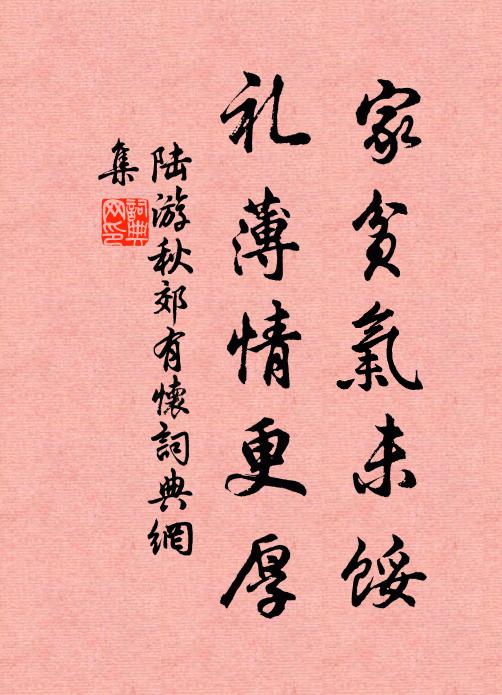 家貧氣未餒
礼薄情更厚
陆游秋郊有懷詞典網
集
詞典网印